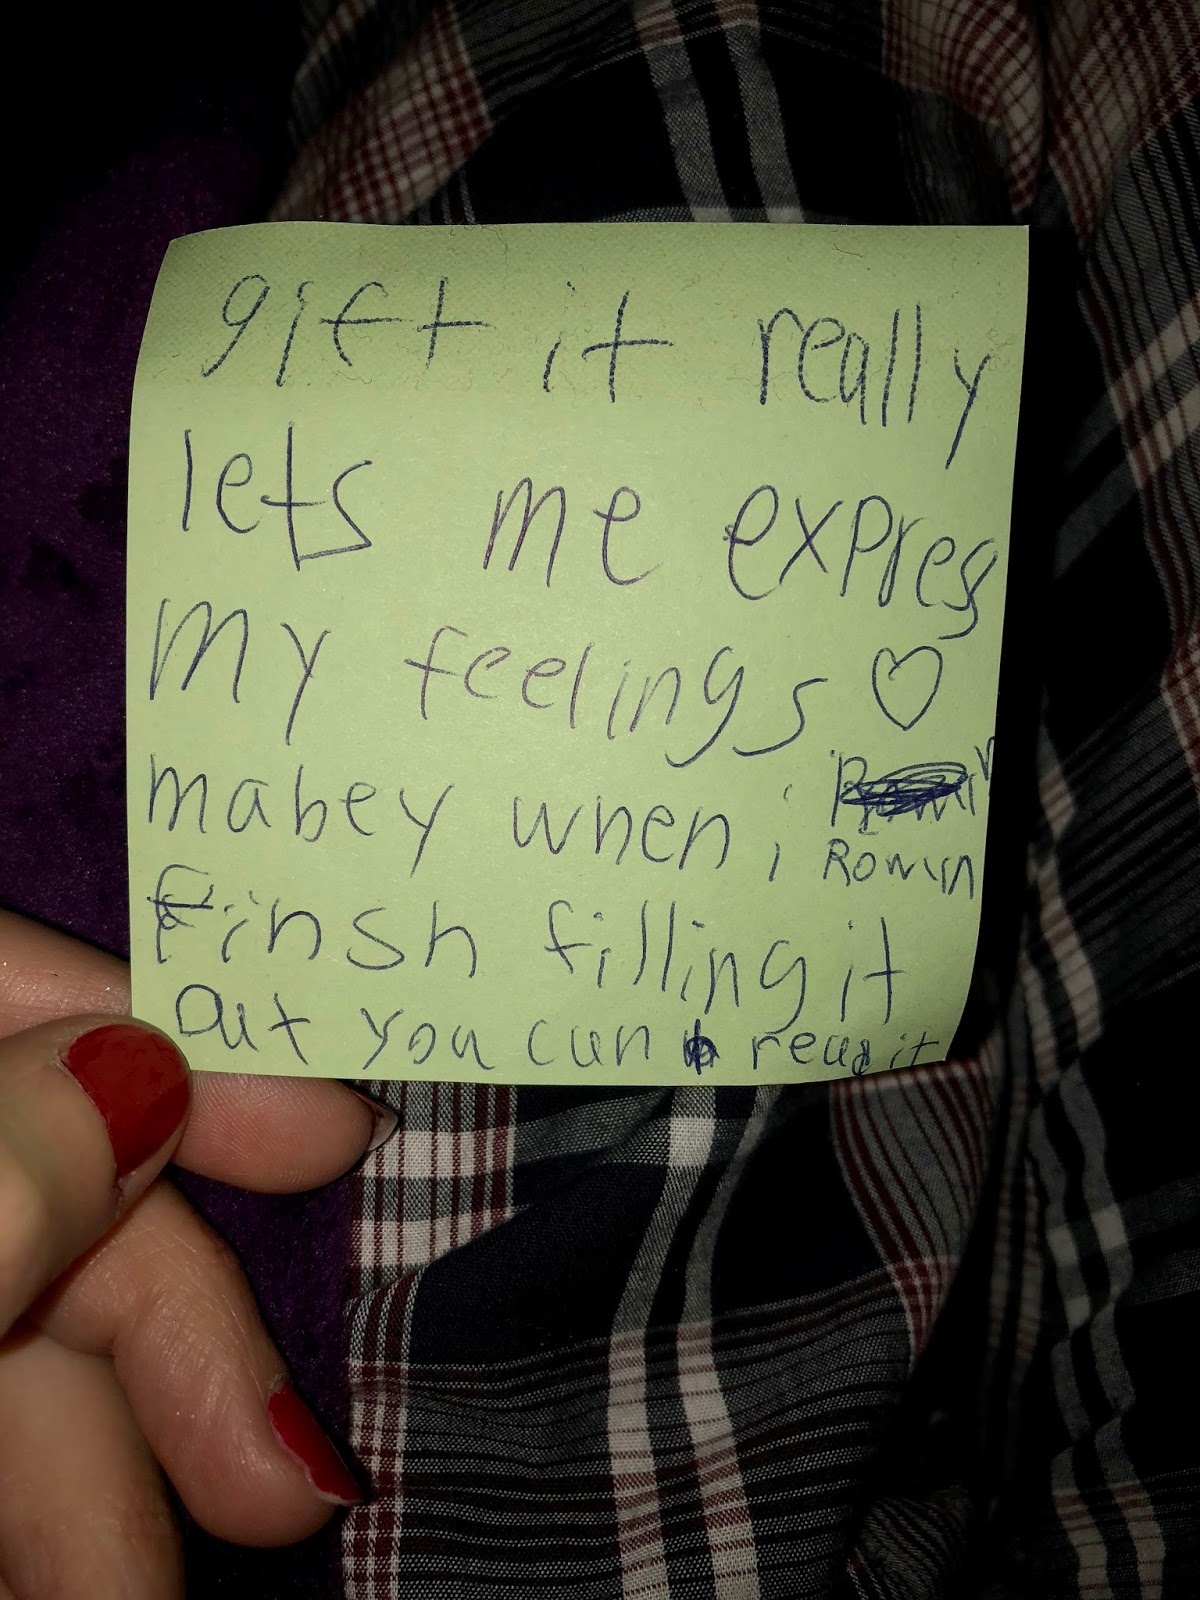 gift it really
lets me expres
my feelings ♡
mabey when i
Rowin
finsh filling it
Out you can read it